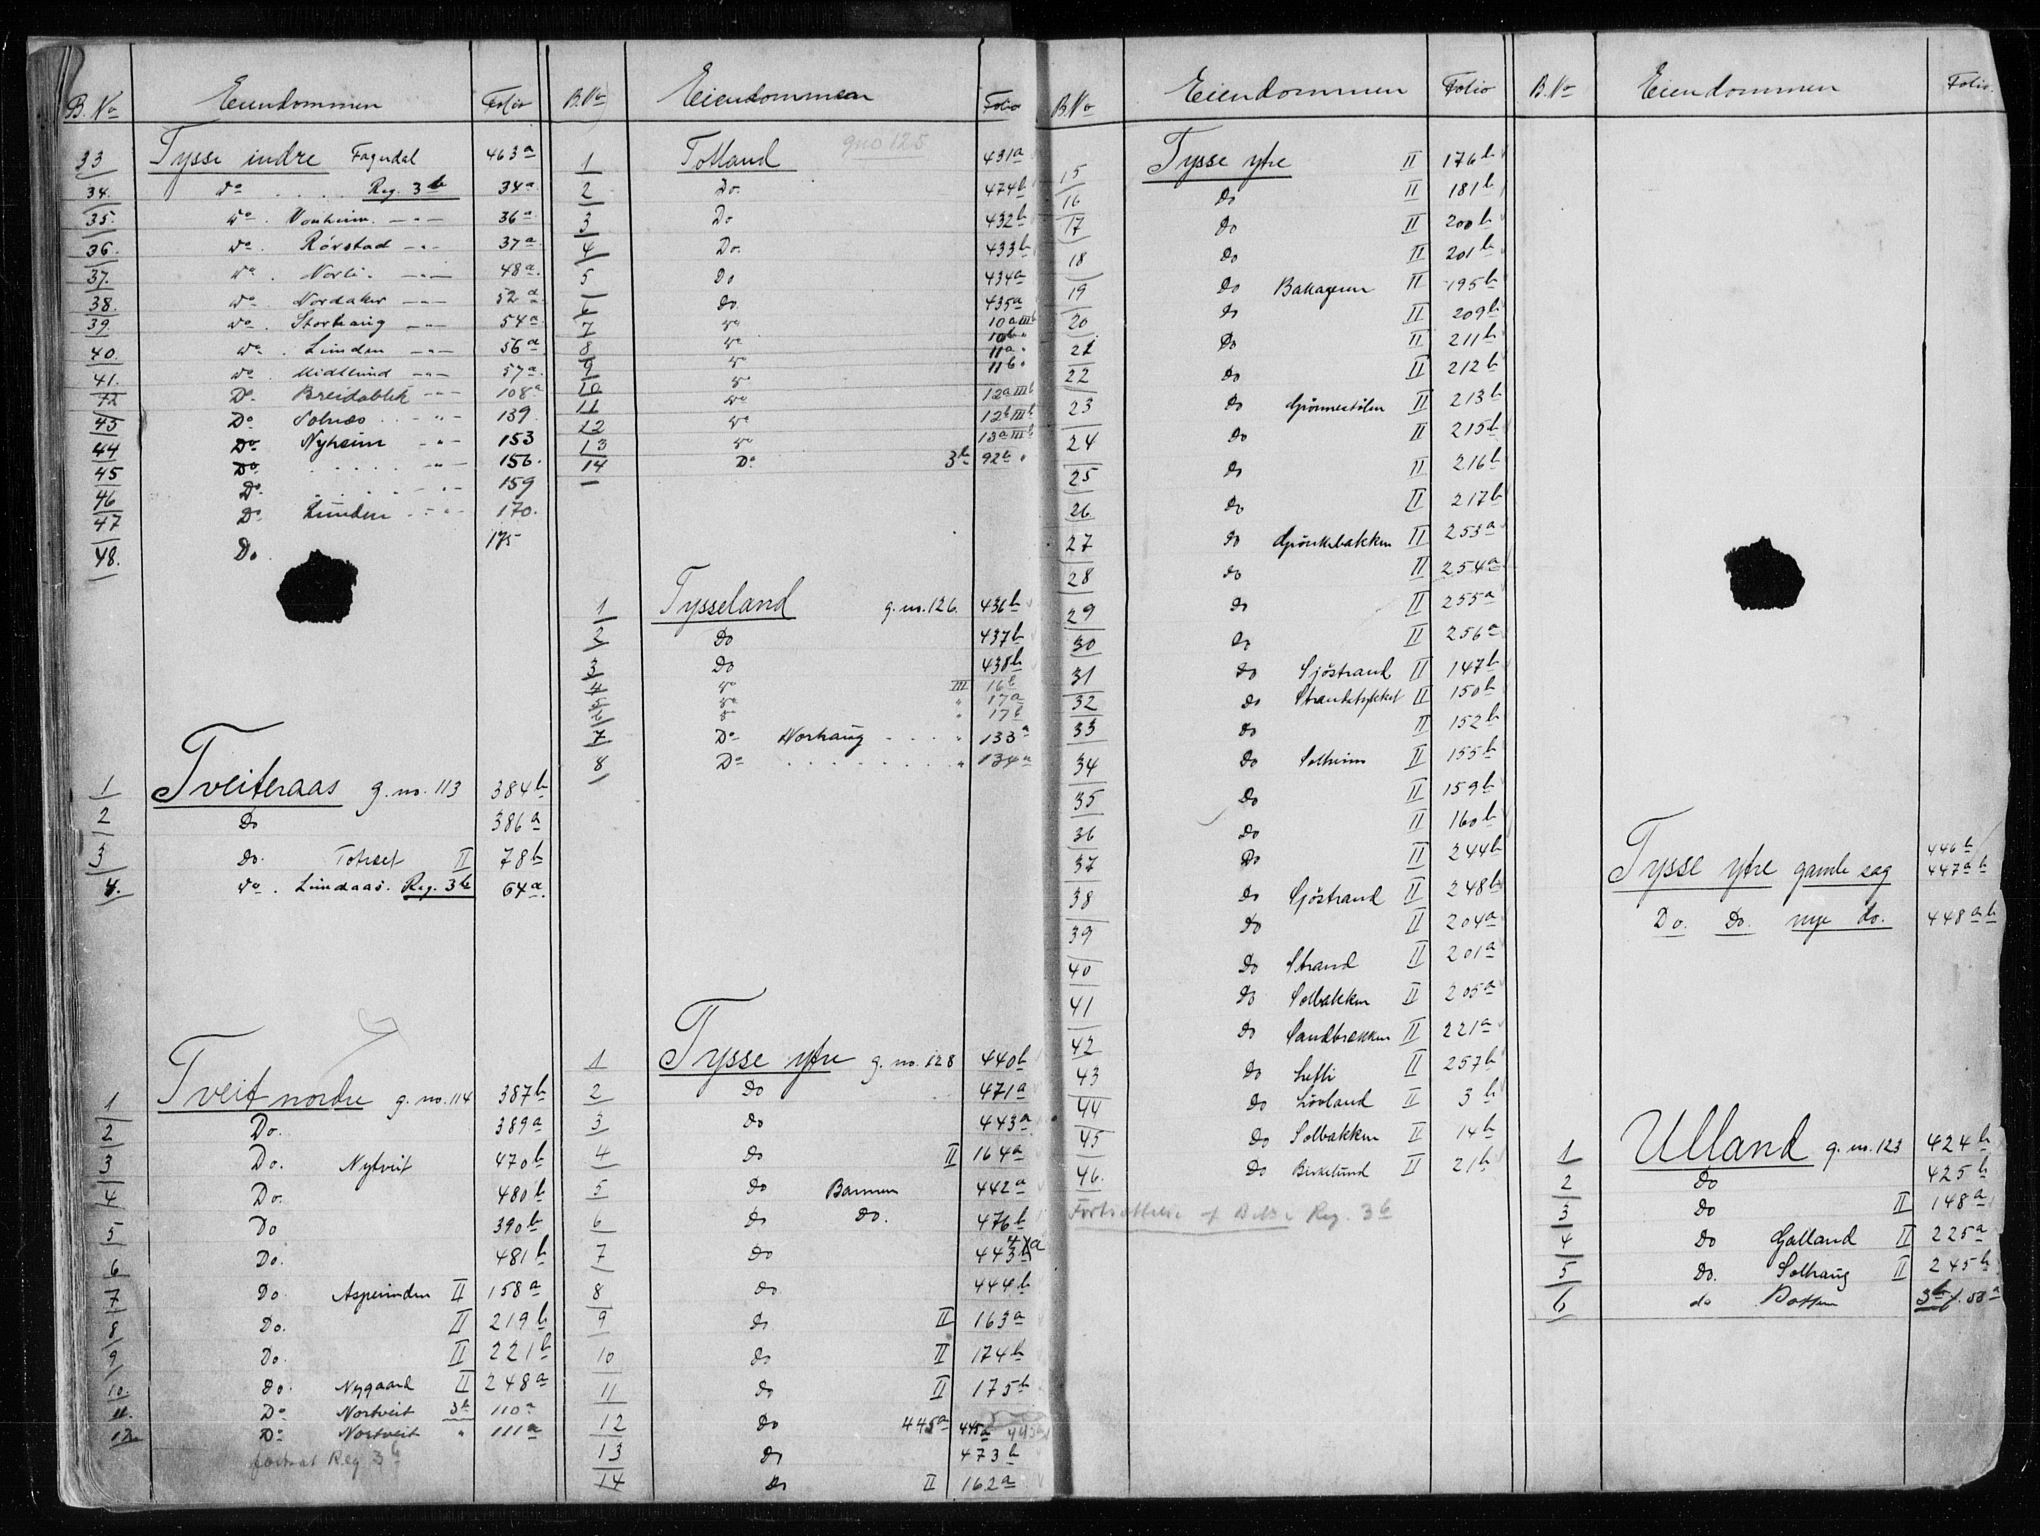 B. No Eiendommen Folio
33 Tysse indre Fagerdal 463a
34. do . . . . Reg. 3b 34a
35. do . Vonheim. — " — 36a
36. do . Rørstad — " — 37a
37. do . Norli. — " — 48a.
38. do . Nordaker — " — 52a
39 do . Storhaug — " — 54a
40. do . Lunden — " — 56a
41. do . Midtlund — " — 57a.
42 Do. Breidablik — " — 108a
43 Do Solnæs . . - " - 139.
44 Do Nyheim - " - 153
45 Do . . . . . - " - 156.
46 Do. . . . . . - " - 159
47 Do Lunden - " - 170.
48. Do. 175
1 Tveiteraas g. no. 113 384b
2 Do 386a
3 Do. Toftset II 78b
4. do . Lundaas. Reg. 3b 64a.
1 Tveit nordre g. no. 114 387b
2 Do. 389a
3 Do. Nytveit 470b
4 Do. 480b
5 Do 390b
6 Do. 481b
7 Do. Asperinden II 158a
8 Do. II 219b
9 Do. II 221b
10. Do. Nygaard II 248a
11. Do Nortveit 3b 110a
12. Do Nortveit " 111a
fortsat Reg 3b
B. No Eiendommen Folio
1 Totland gno 125 431a
2 Do. 474b
3 Do 432b
4 Do. 433b
5 Do 434a
6 do. 435a
7 do 10a IIIb
8 do 10b "
9 do 11a "
10 do 11b "
11 do 12a IIIb
12 do 12b IIIb
13 do 13a IIIb
14 Do 3b 92b
1 Tysseland g. no. 126. 436b
2 Do 437b
3 Do 438b
4 do III 16b
5 do " 17a
6 do " 17b
7 Do Norhaug . . . . " 133a
8 Do . . . . . . . . " 134a
1 Tysse ytre g. no. 128 440b
2 Do 471a
3 Do 443a
4 Do II 164a
5 Do Barmen 442a
6 do do. 476b
7 Do 443b 47a
8 do 444b
9 do II 163a
10 do II 174b
11 do II 175b
12 Do 445a 445a 445a
13 do 473b
14 do II 162a
B. No Eiendommen Folio
15 Tysse ytre II 176b
16 do II 181b
17 do II 200b
18 do II 201b
19 do Bakkageren II 195b
20 do II 209b
21 Do II 211b
22 do II 212b
23 do Grønnestølen II 213b
24 do II 215b
25 do II 216b
26 do II 217b
27 do Grønebakken II 253a
28 do II 254a
29 do II 255a
30 do II 256a
31 do Sjøstrand II 147b
32 do Strandstykket II 150b
33 do II 152b
34 do Solheim II 155b
35 do II 159b
36 do II 160b
37 Do II 244b
38 do Sjøstrand II 248b
39 do II 204a
40 do Strand II 201a
41 do Solbakken II 205a
42 do Sandbrekken II 221a
43 do Lethi II 257b
44 do Løvland II 3b
45 do Solbakken II 14b
46. do Birkelund II 21b
Fortsættelse af Dette i Reg. 3b
B. No Eiendommen Folio.
446b
Tysse ytre gamle sag 447ab
Do. Do. nye do. 448ab
1 Ulland g. no. 123 424b
2 Do 425b
3 Do II 148a
4 Do Galland II 225a
5 Do. Solhaug II 245b
6 do Botten 3b f. 58a